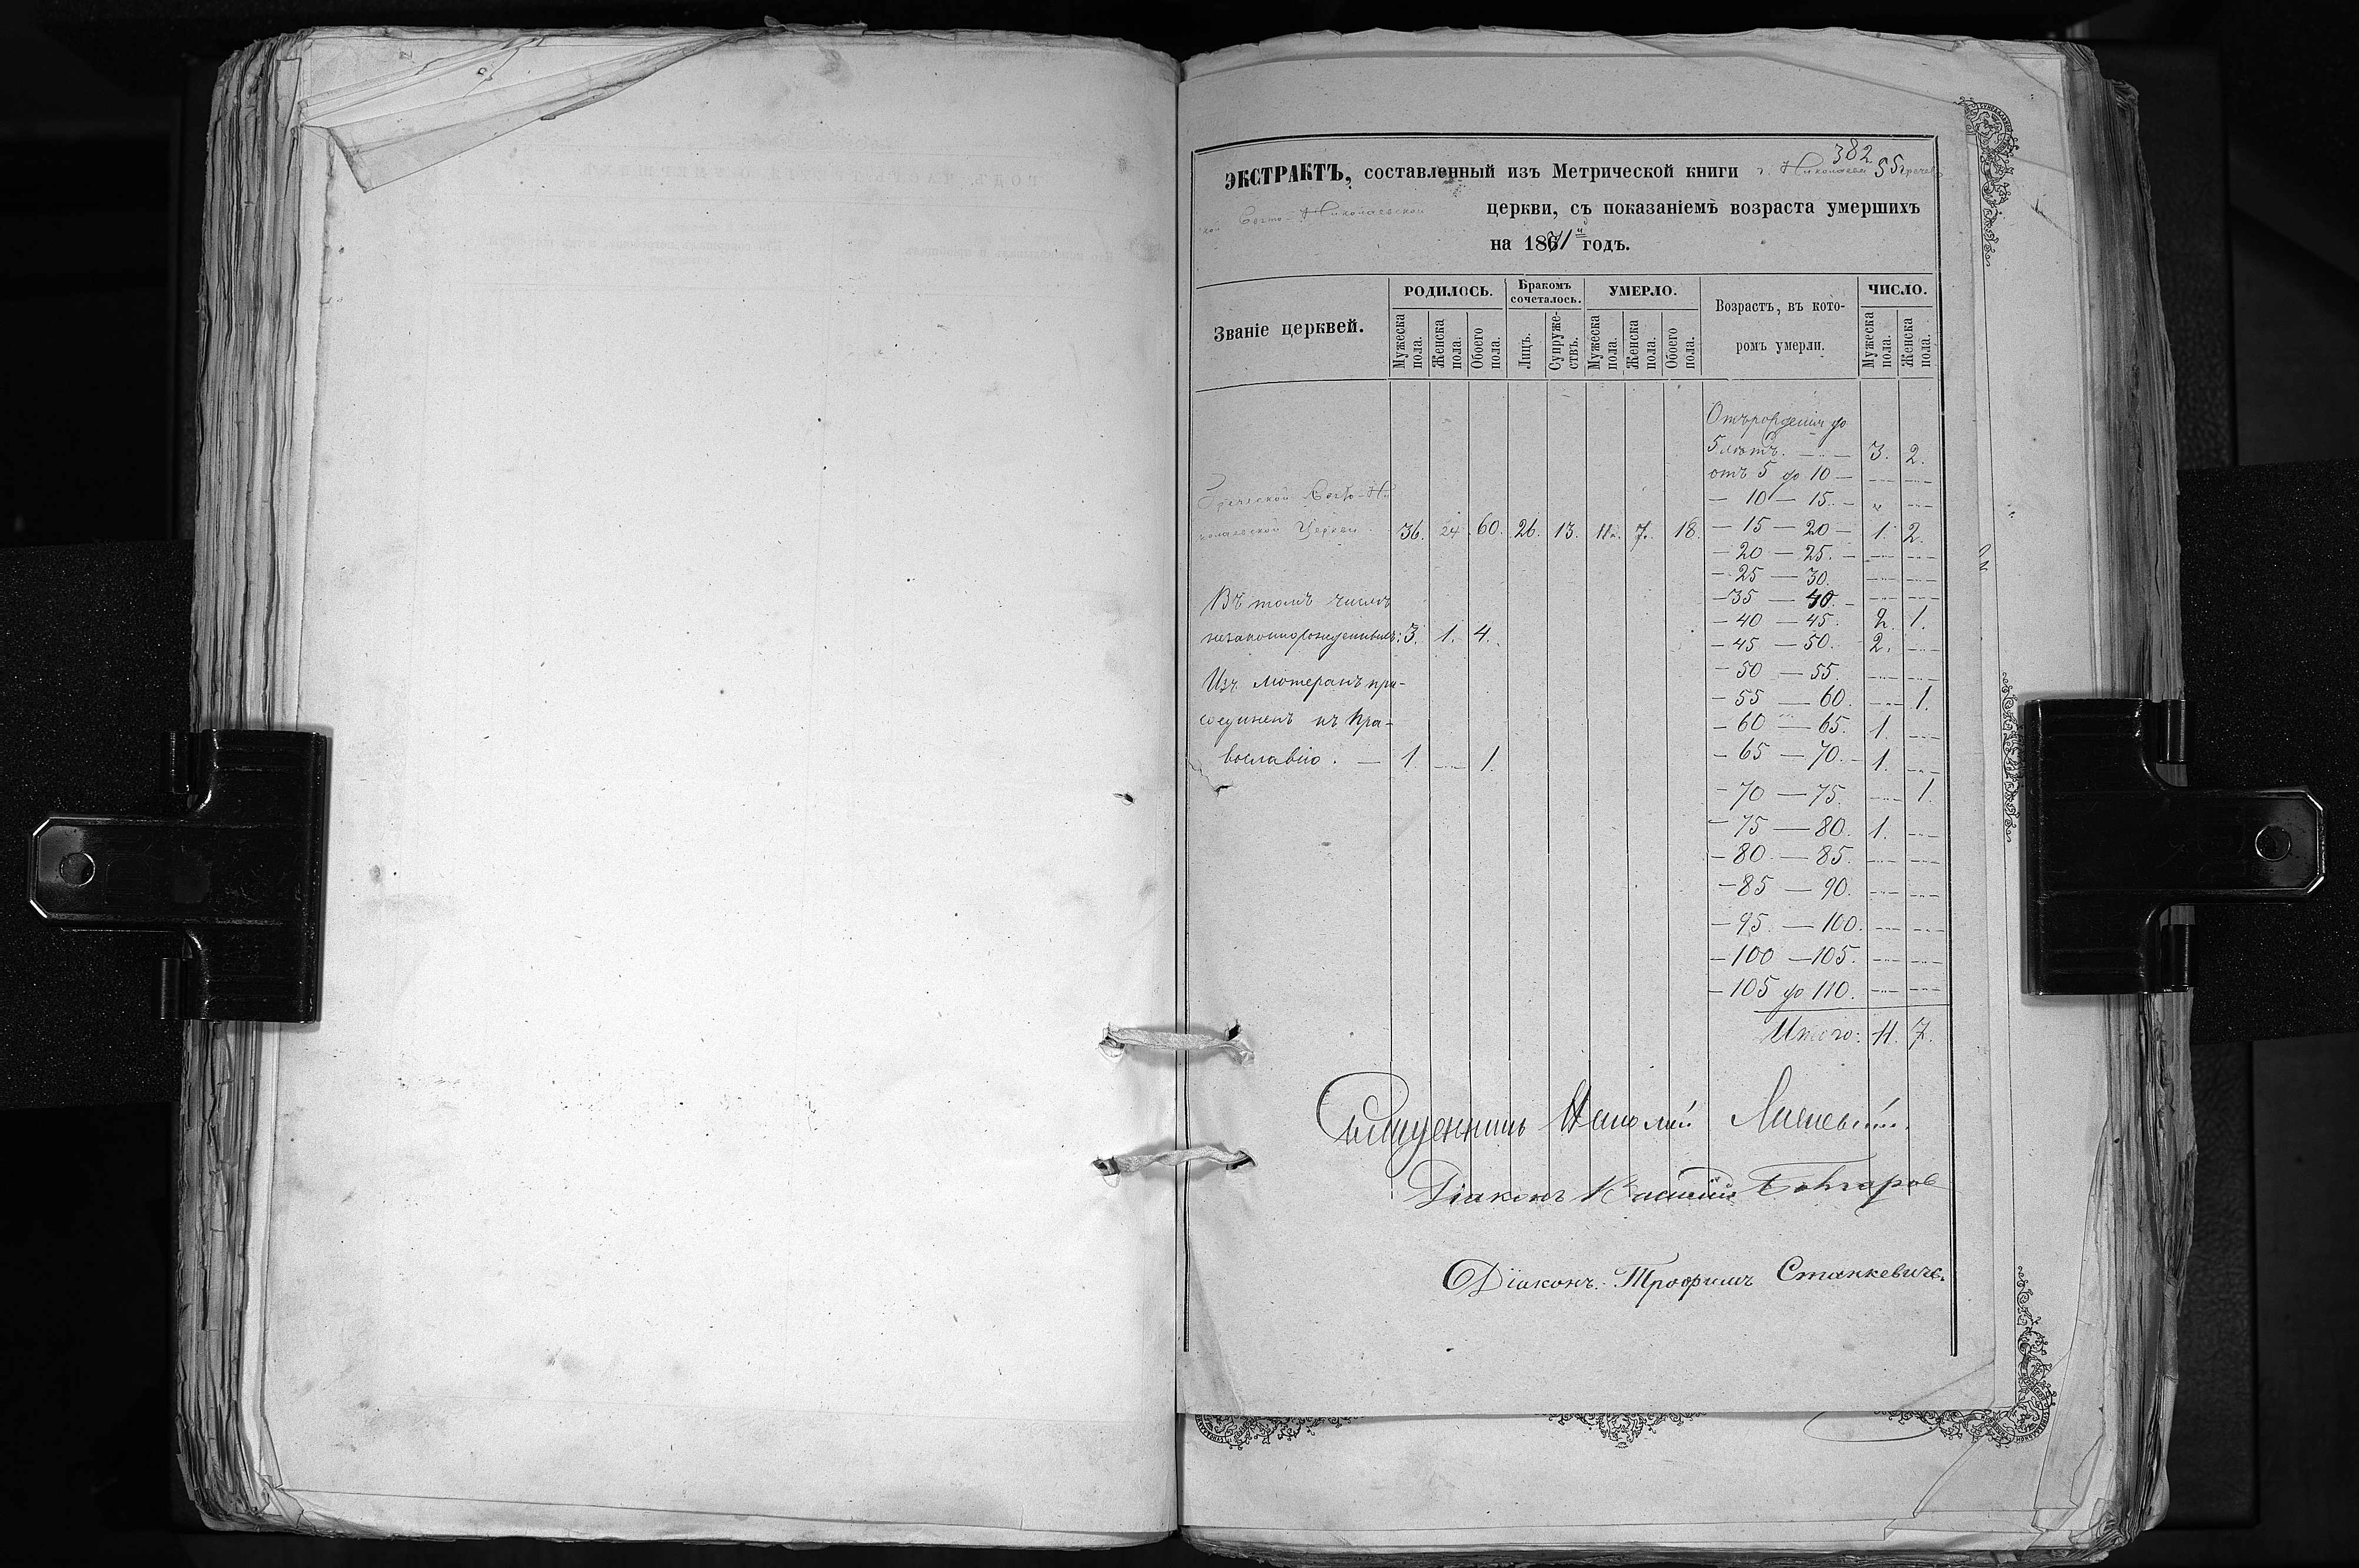 382
55
ЭКСТРАКТЪ, составленный изъ Метрической книги г. Николаева Гречес
кой Свято-Николаевской церкви, съ показаніемъ возраста умершихъ
на 1871й годъ.
Званіе церквей.
РОДИЛОСЬ.
Бракомъ сочеталось.
УМЕРЛО.
Возрастъ, въ кото-
ромъ умерли.
ЧИСЛО.
Мужеска пола. Женска пола. Обоего пола. Лицъ. Супруже-ствъ. Мужеска пола. Женска пола. Обоего пола. Мужеска пола. Женска пола.
Отъ рожденія до
5 лѣтъ. — 3. 2.
отъ 5 до 10 —
— 10 — 15. — „
Греческой Свято-Ни
колаевской Церкви. 36. 24 60. 26. 13. 11. 7. 18. — 15 — 20 — 1. 2.
— 20 — 25. —
— 25 — 30.
— 35 — 40. —
— 40 — 45. 2. 1.
— 45 — 50. 2.
— 50 — 55.
— 55 — 60. 1.
— 60 — 65. 1.
— 65 — 70. — 1.
— 70 — 75. 1.
— 75 — 80. 1.
— 80 — 85.
— 85 — 90.
— 95 — 100.
— 100 — 105.
— 105 до 110.
Итого: 11. 7.
Въ томъ числѣ
незаконнорожденныхъ: 3. 1. 4.
Изъ лютеранъ при-
соединенъ къ Пра-
вославію. — 1. 1.
Священникъ
Діаконъ Василій
Діаконъ Трофимъ Станкевичъ.